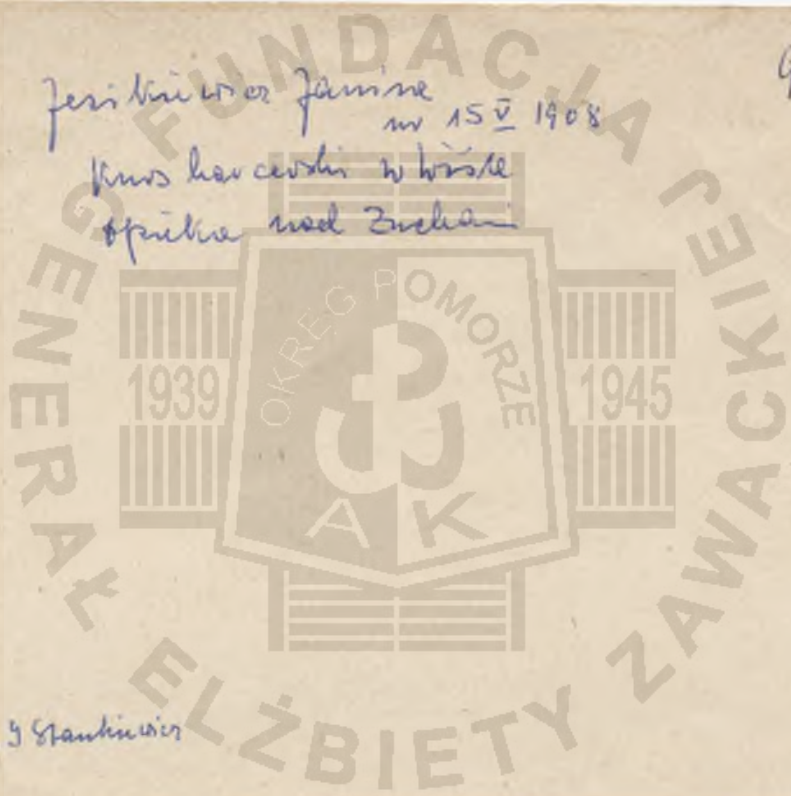 Jesikiewicz Janina
ur 15 V 1908
Kurs harcerski w Wiśle
opieka nad Zuchami
J Stankiewicz
FUNDACJA GENERAŁ ELŻBIETY ZAWACKIEJ
OKRĘG POMORZE
1939
1945
AK